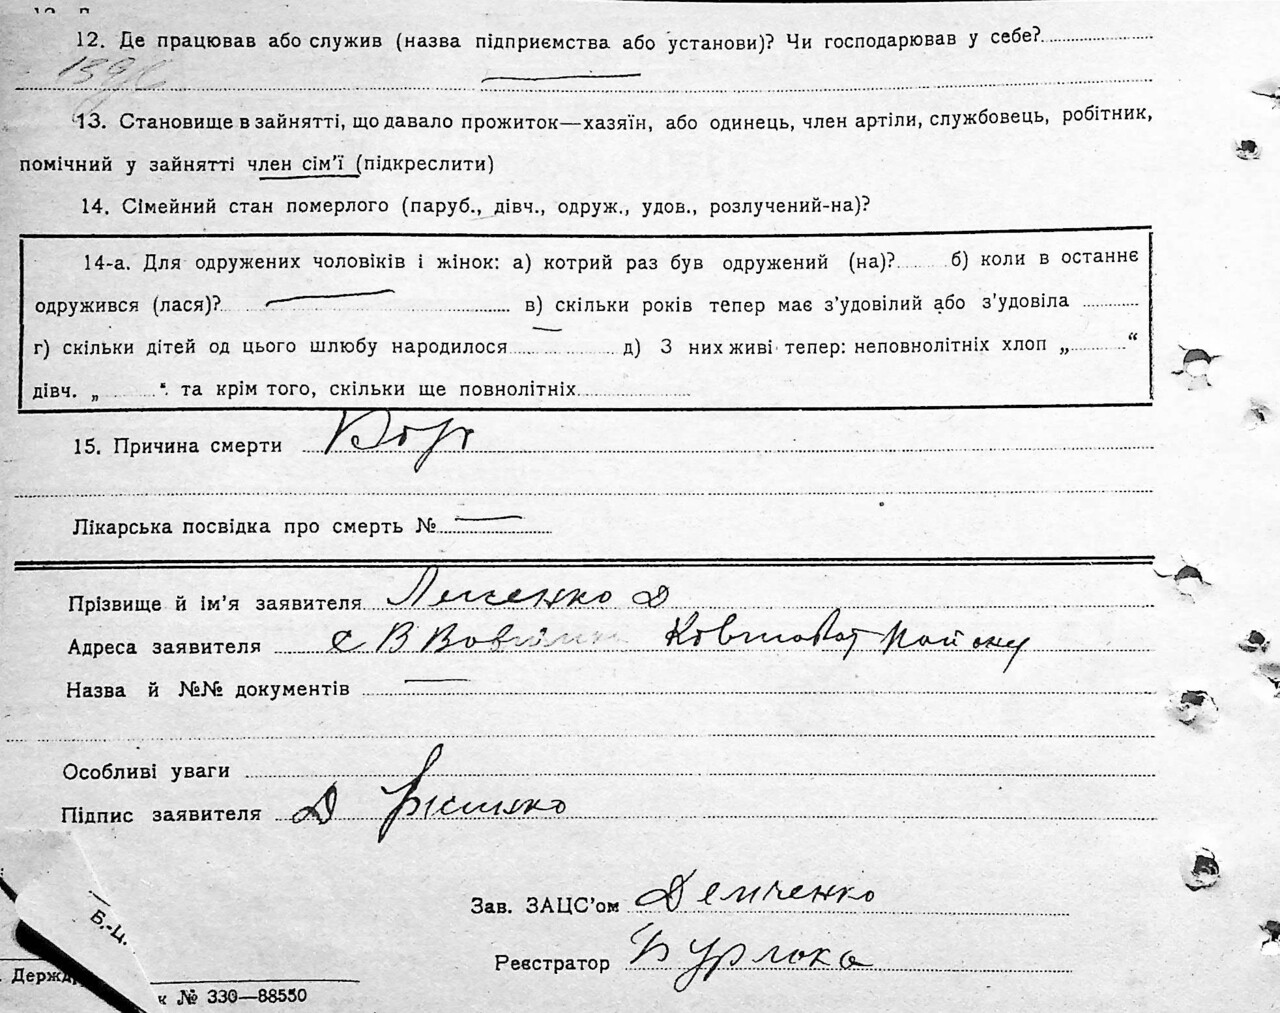 12. Де працював або служив (назва підприємства або установи)? Чи господарював у себе?
13. Становище в зайнятті, що давало прожиток—хазяїн, або одинець, член артіли, службовець, робітник,
помічний у зайнятті член сім'ї (підкреслити)
14. Сімейний стан померлого (паруб., дівч., одруж., удов., розлучений-на)?
14-а. Для одружених чоловіків і жінок: а) котрий раз був одружений (на)?...... б) коли в останнє
одружився (лася)?.............. в) скільки років тепер має з'удовілий або з'удовіла ..........
г) скільки дітей од цього шлюбу народилося.............. д) З них живі тепер: неповнолітніх хлоп „..........“
дівч. „..........“ та крім того, скільки ще повнолітніх..............
15. Причина смерти
Лікарська посвідка про смерть № —
Прізвище й ім'я заявителя Д
Адреса заявителя с В району
Назва й №№ документів —
Особливі уваги
Підпис заявителя Д
Зав. ЗАЦС'ом Демченко
Реєстратор Бурлака
Б.-Ц.
Держ
к № 330—88550